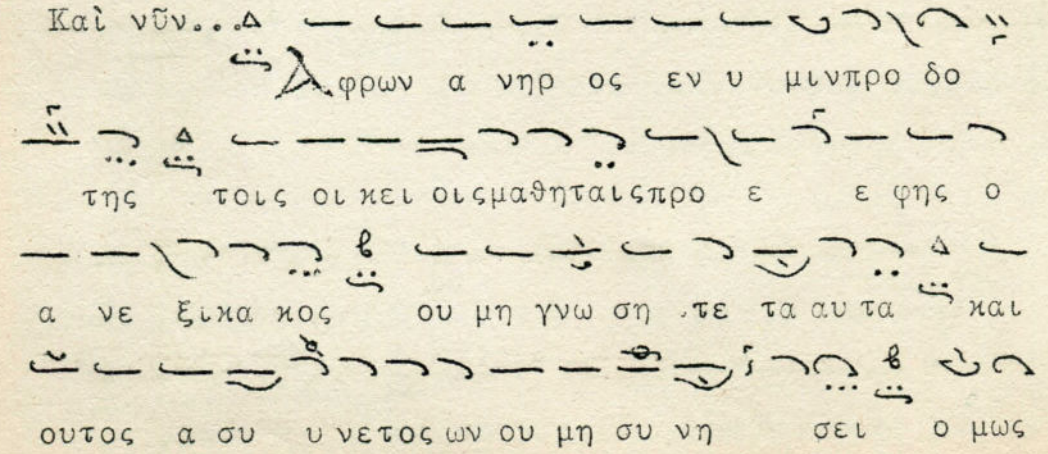 Καὶ νῦν...
Αφρων α νηρ ος εν υ μινπρο δο
της τοις οι κει οιςμαθηταιςπρο ε ε φης ο
α νε ξικα κος ου μη γνω ση τε τα αυ τα και
ουτος α συ υ νετος ων ου μη συ νη σει ο μως